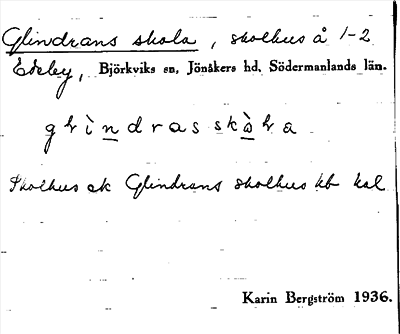 Glindrans skola, skolhus å 1-2
Edeby, Björkviks sn, Jönåkers hd, Södermanlands län.
Skolhus ek Glindrans skolhus kb kal
Karin Bergström 1936.